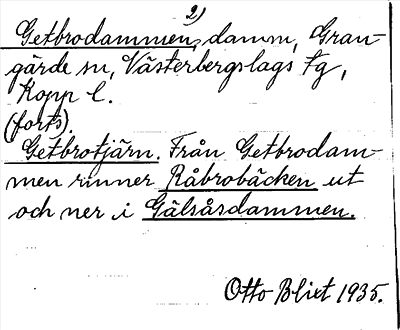 2)
Getbrodammen, damm, Gran-
gärde sn, Västerbergslags fg,
Kopp l.
(forts).
Getbrotjärn. Från Getbrodam-
men rinner Råbrobäcken ut
och ner i Gälsåsdammen.
Otto Blixt 1935.